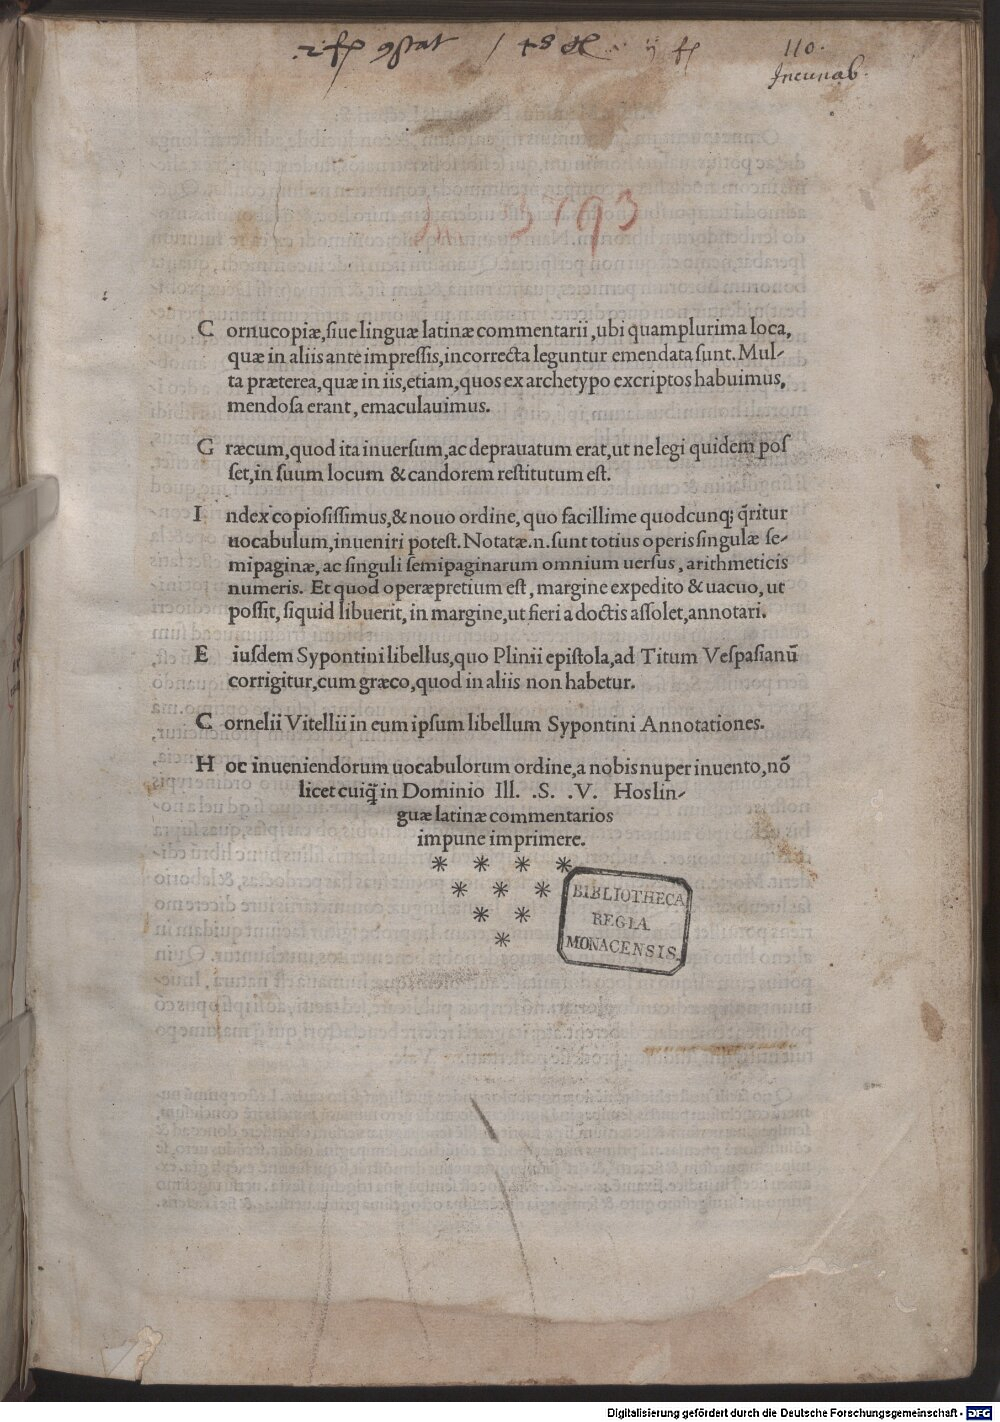 110.
Incunab.
3793
Cornucopiæ, siue linguæ latinæ commentarii, ubi quamplurima loca,
quæ in aliis ante impressis, incorrecta leguntur emendata sunt. Mul-
ta præterea, quæ in iis, etiam, quos ex archetypo excriptos habuimus,
mendosa erant, emaculauimus.
Græcum, quod ita inuersum, ac deprauatum erat, ut ne legi quidem pos
set, in suum locum & candorem restitutum est.
Index copiosissimus, & nouo ordine, quo facillime quodcunq; q̃ritur
uocabulum, inueniri potest. Notatæ .n. sunt totius operis singulæ se-
mipaginæ, ac singuli semipaginarum omnium uersus, arithmeticis
numeris. Et quod operæpretium est, margine expedito & uacuo, ut
possit, siquid libuerit, in margine, ut fieri a doctis assolet, annotari.
Eiusdem Sypontini libellus, quo Plinii epistola, ad Titum Vespasianũ
corrigitur, cum græco, quod in aliis non habetur.
Cornelii Vitellii in eum ipsum libellum Sypontini Annotationes.
Hoc inueniendorum uocabulorum ordine, a nobis nuper inuento, nõ
licet cuiq̃ in Dominio Ill. .S. .V. Hos lin-
guæ latinæ commentarios
impune imprimere.
BIBLIOTHECA
REGIA
MONACENSIS.
Digitalisierung gefördert durch die Deutsche Forschungsgemeinschaft - DFG